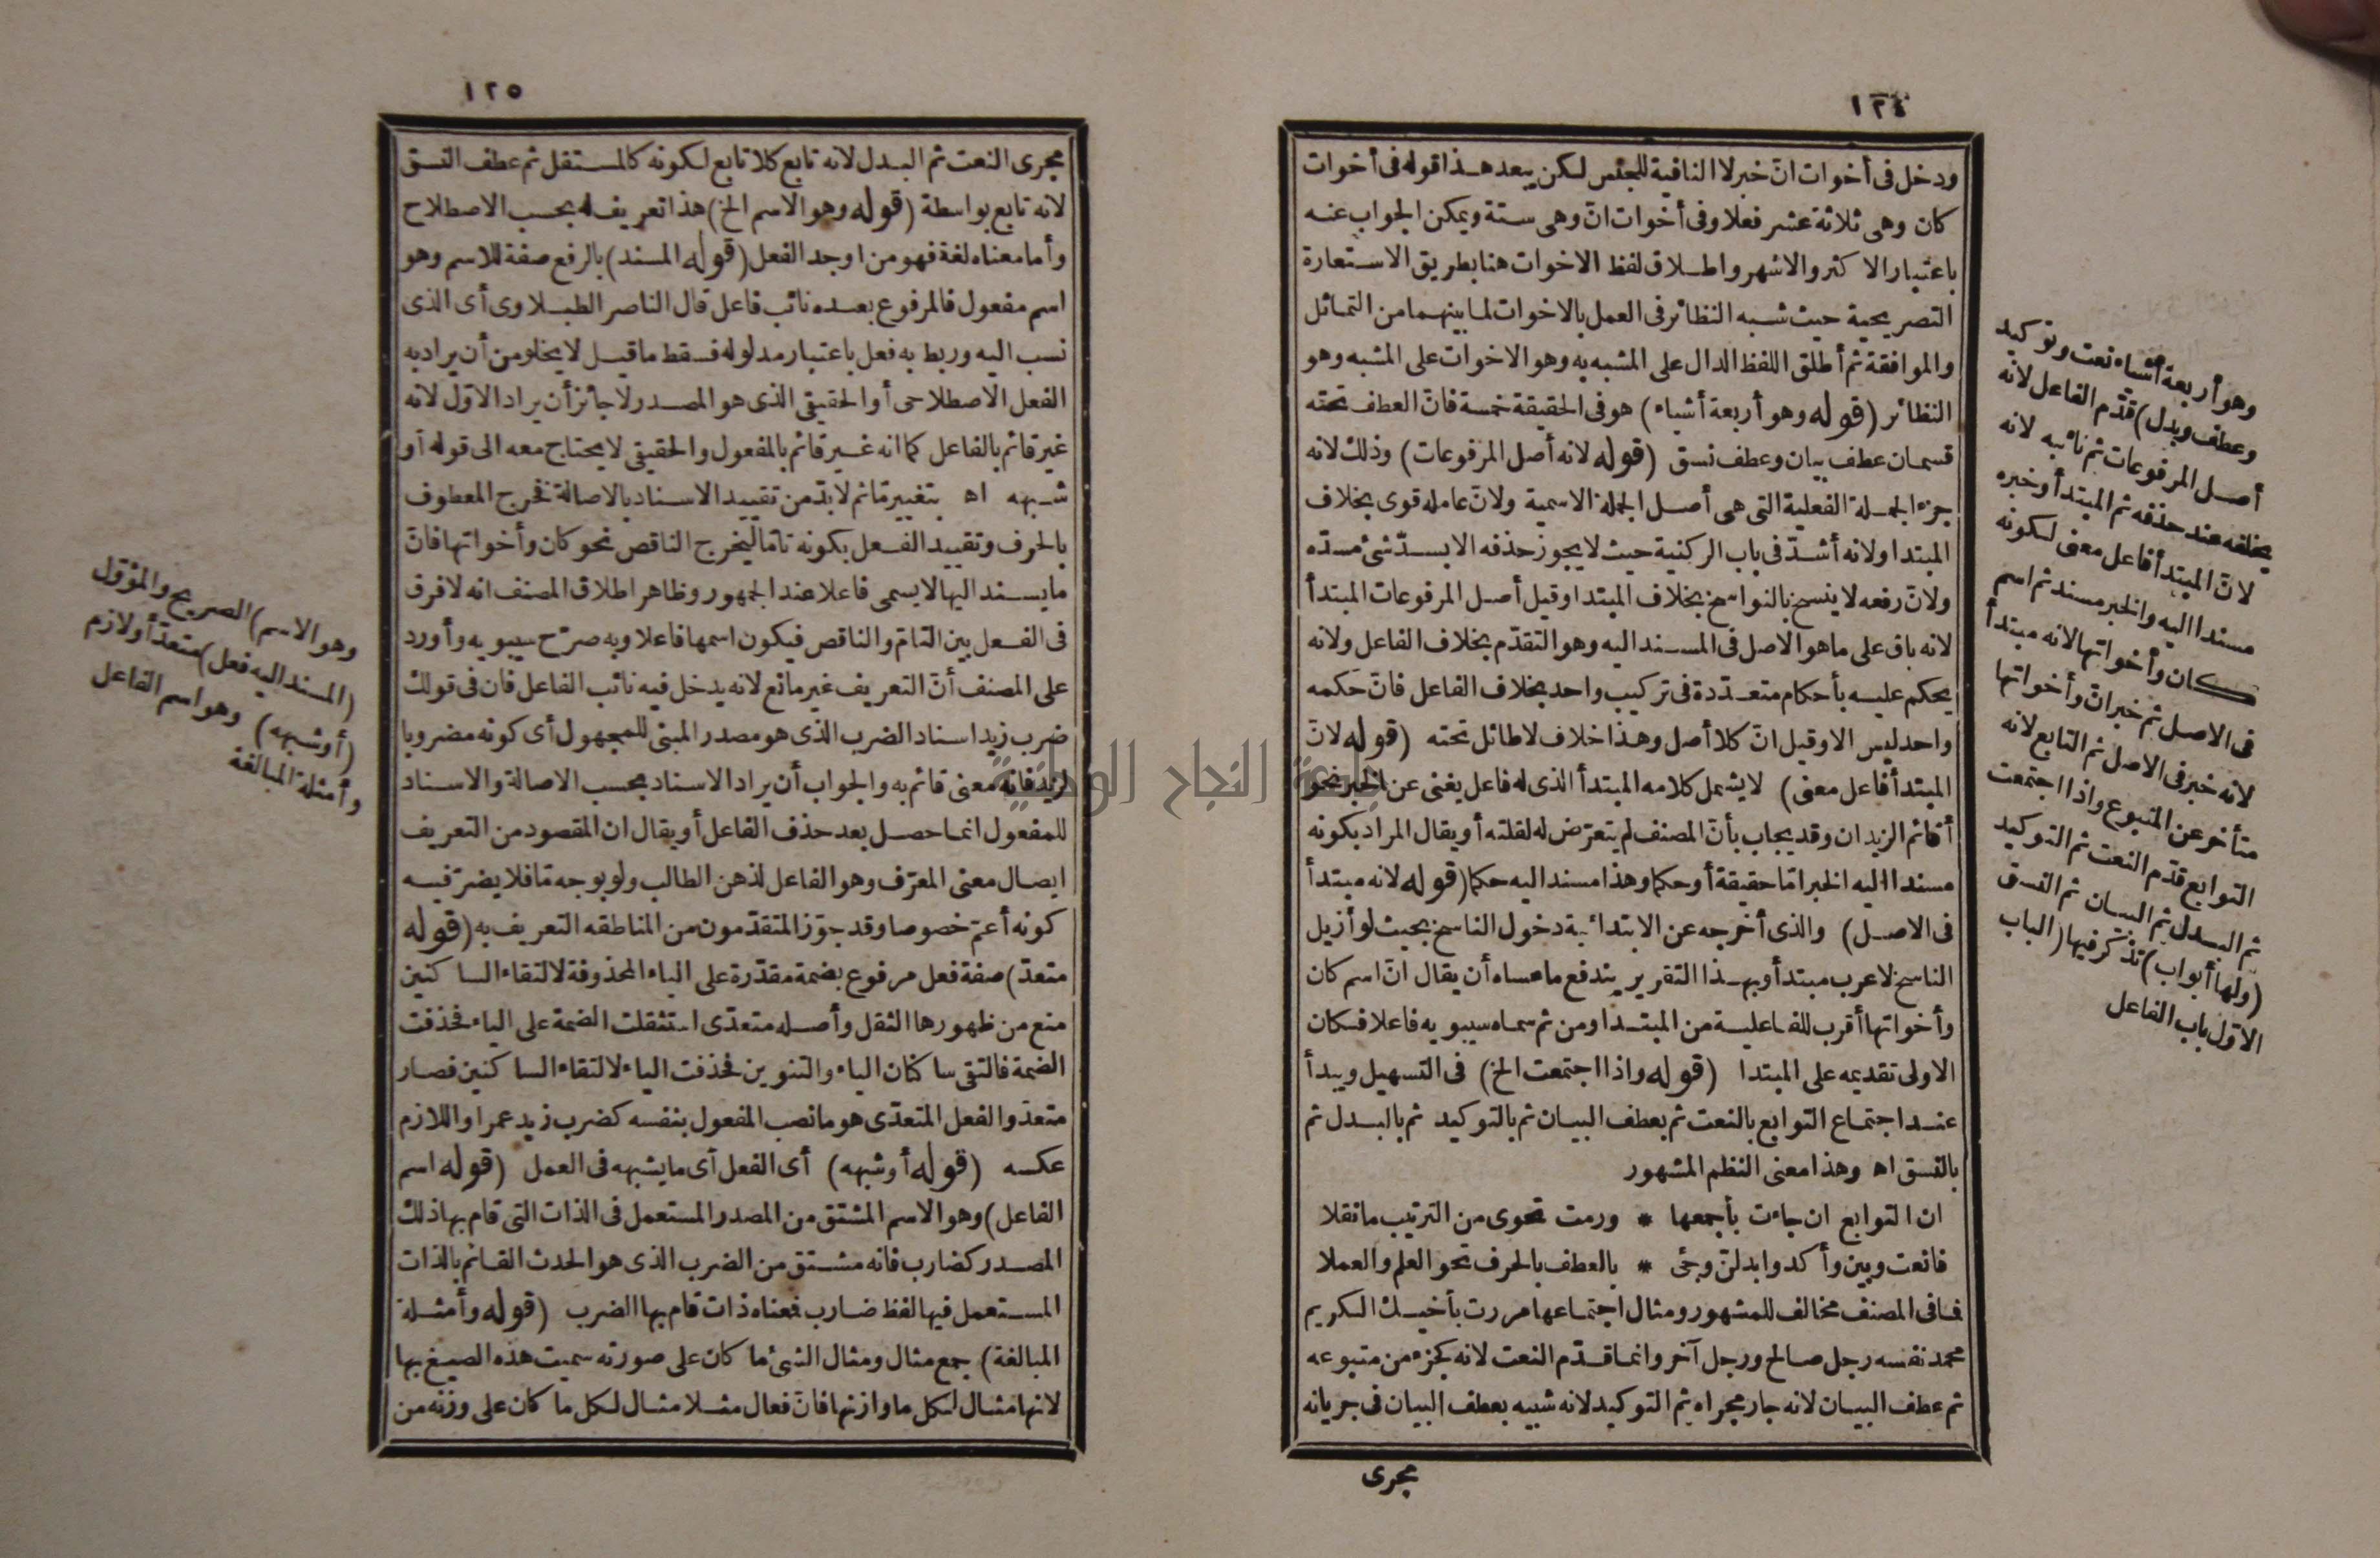 ١٢٤
ودخل فى أخوات انّ خبر لا النافية للجنس لكن يبعد هذا قوله فى أخوات
كان وهى ثلاثة عشر فعلا وفى أخوات انّ وهى ستة ويمكن الجواب عنه
باعتبار الاكثر والاشهر واطلاق لفظ الاخوات هنا بطريق الاستعارة
التصريحية حيث شبه النظائر فى العمل بالاخوات لما بينهما من التماثل
والموافقة ثم أطلق اللفظ الدال على المشبه به وهو الاخوات على المشبه وهو
النظائر (قوله وهو أربعة أشياء) هو فى الحقيقة خمسة فانّ العطف تحته
قسمان عطف بيان وعطف نسق (قوله لانه أصل المرفوعات) وذلك لانه
جزء الجملة الفعلية التى هى أصل الجملة الاسمية ولانّ عامله قوى بخلاف
المبتدا ولانه أشدّ فى باب الركنية حيث لا يجوز حذفه الا بسدّ شئ مسدّه
ولانّ رفعه لا ينسخ بالنواسخ بخلاف المبتدا وقيل أصل المرفوعات المبتدأ
لانه باق على ما هو الاصل فى المسند اليه وهو التقدّم بخلاف الفاعل ولانه
يحكم عليه بأحكام متعدّدة فى تركيب واحد بخلاف الفاعل فانّ حكمه
واحد ليس الا وقيل انّ كلا أصل وهذا خلاف لا طائل تحته (قوله لانّ
المبتدأ فاعل معنى) لا يشمل كلامه المبتدأ الذى له فاعل يغنى عن الخبر نحو
أقائم الزيدان وقد يجاب بأنّ المصنف لم يتعرّض له لقلته أو يقال المراد بكونه
مسندا اليه الخبر امّا حقيقة أو حكما وهذا مسند اليه حكما (قوله لانه مبتدأ
فى الاصل) والذى أخرجه عن الابتدائية دخول الناسخ بحيث لو أزيل
الناسخ لاعرب مبتدأ وبهذا التقرير يندفع ما عساه أن يقال انّ اسم كان
وأخواتها أقرب للفاعلية من المبتدا ومن ثم سماه سيبويه فاعلا فكان
الاولى تقديمه على المبتدا (قوله واذا اجتمعت الخ) فى التسهيل ويبدأ
عند اجتماع التوابع بالنعت ثم بعطف البيان ثم بالتوكيد ثم بالبدل ثم
بالنسق اه وهذا معنى النظم المشهور
ان التوابع ان جاءت بأجمعها * ورمت تحوى من الترتيب ما نقلا
فانعت وبين وأكد وابدلن وجئ * بالعطف بالحرف تحو العلم والعملا
فما فى المصنف مخالف للمشهور ومثال اجتماعها مررت بأخيك الكريم
محمد نفسه رجل صالح ورجل آخر وانما قدّم النعت لانه كجزء من متبوعه
ثم عطف البيان لانه جار مجراه ثم التوكيد لانه شبيه بعطف البيان فى جريانه
مجرى
وهو أربعة أشياء نعت وتوكيد
وعطف وبدل) قدّم الفاعل لانه
أصل المرفوعات ثم نائبه لانه
يخلفه عند حذفه ثم المبتدأ وخبره
لانّ المبتدأ فاعل معنى لكونه
مسندا اليه والخبر مسند ثم اسم
كان وأخواتها لانه مبتدأ
فى الاصل ثم خبر انّ وأخواتها
لانه خبر فى الاصل ثم التابع لانه
متأخر عن المتبوع واذا اجتمعت
التوابع قدّم النعت ثم التوكيد
ثم البدل ثم البيان ثم النسق
(ولها أبواب) تذكر فيها (الباب
الاوّل باب الفاعل
١٢٥
مجرى النعت ثم البدل لانه تابع كلا تابع لكونه كالمستقل ثم عطف النسق
لانه تابع بواسطة (قوله وهو الاسم الخ) هذا تعريف له بحسب الاصطلاح
وأما معناه لغة فهو من اوجد الفعل (قوله المسند) بالرفع صفة للاسم وهو
اسم مفعول فالمرفوع بعده نائب فاعل قال الناصر الطبلاوى أى الذى
نسب اليه وربط به فعل باعتبار مدلوله فسقط ما قيل لا يخلو من أن يراد به
الفعل الاصطلاحى أو الحقيقى الذى هو المصدر لا جائز أن يراد الاوّل لانه
غير قائم بالفاعل كما انه غير قائم بالمفعول والحقيقى لا يحتاج معه الى قوله أو
شبهه اه بتغيير مّا ثم لا بدّ من تقييد الاسناد بالاصالة فخرج المعطوف
بالحرف وتقييد الفعل بكونه تامّا ليخرج الناقص نحو كان وأخواتها فانّ
ما يسند اليها لا يسمى فاعلا عند الجمهور وظاهر اطلاق المصنف انه لا فرق
فى الفعل بين التامّ والناقص فيكون اسمها فاعلا وبه صرّح سيبويه وأورد
على المصنف أنّ التعريف غير مانع لانه يدخل فيه نائب الفاعل فان فى قولك
ضرب زيد اسناد الضرب الذى هو مصدر المبنى للمجهول أى كونه مضروبا
لزيد فانه معنى قائم به والجواب أن يراد الاسناد بحسب الاصالة والاسناد
للمفعول انما حصل بعد حذف الفاعل أو يقال ان المقصود من التعريف
ايصال معنى المعرّف وهو الفاعل لذهن الطالب ولو بوجه مّا فلا يضرّ فيه
كونه أعمّ خصوصا وقد جوّز المتقدّمون من المناطقه التعريف به (قوله
متعدّ) صفة فعل مرفوع بضمة مقدّرة على الياء المحذوفة لالتقاء الساكنين
منع من ظهورها الثقل وأصله متعدّى استثقلت الضمة على الياء فحذفت
الضمة فالتقى ساكنان الياء والتنوين فحذفت الياء لالتقاء الساكنين فصار
متعدّ والفعل المتعدّى هو ما نصب المفعول بنفسه كضرب زيد عمرا واللازم
عكسه (قوله أو شبهه) أى الفعل أى ما يشبهه فى العمل (قوله اسم
الفاعل) وهو الاسم المشتق من المصدر المستعمل فى الذات التى قام بها ذلك
المصدر كضارب فانه مشتق من الضرب الذى هو الحدث القائم بالذات
المستعمل فيها لفظ ضارب فمعناه ذات قام بها الضرب (قوله وأمثلة
المبالغة) جمع مثال ومثال الشئ ما كان على صورته سميت هذه الصيغ بها
لانها مثال لكل ما وازنها فانّ فعال مثلا مثال لكل ما كان على وزنه من
وهو الاسم) الصريح والمؤوّل
(المسند اليه فعل) متعدّ أو لازم
(أو شبهه) وهو اسم الفاعل
وأمثلة المبالغة
النجاح